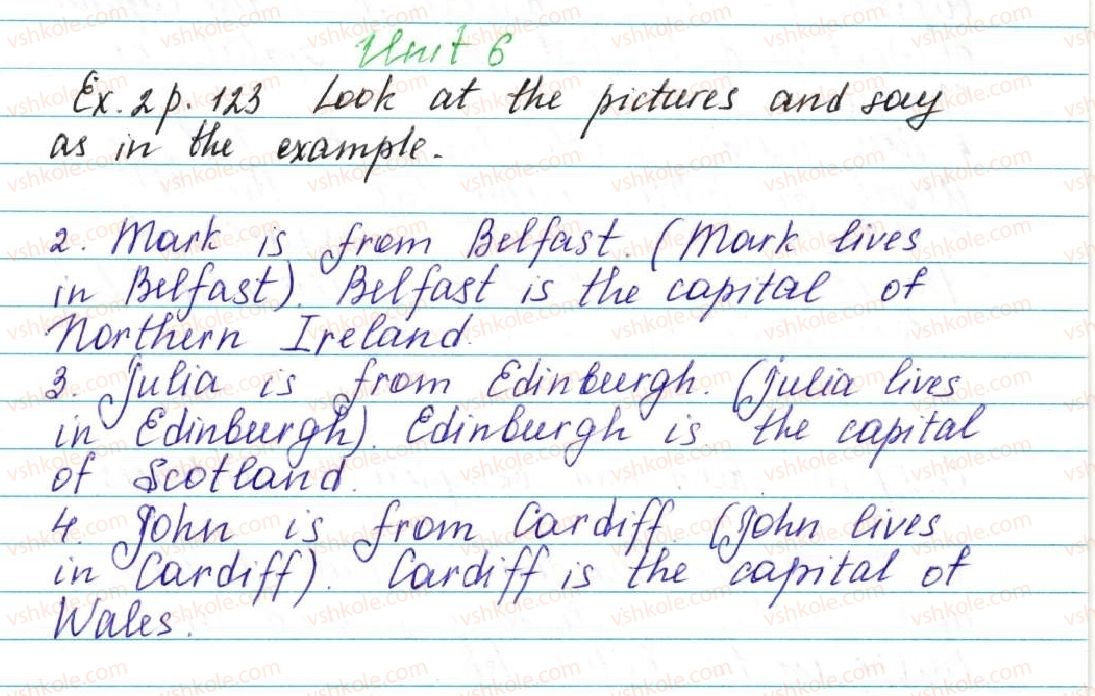 Unit 6
Ex. 2 p. 123 Look at the pictures and say
as in the example.
2. Mark is from Belfast. (Mark lives
in Belfast). Belfast is the capital of
Northern Ireland.
3. Julia is from Edinburgh. (Julia lives
in Edinburgh). Edinburgh is the capital
of Scotland.
4. John is from Cardiff. (John lives
in Cardiff). Cardiff is the capital of
Wales.
vshkole.com